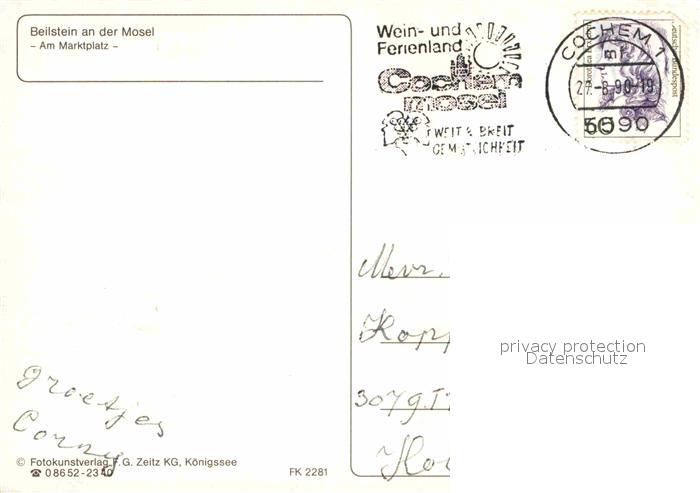 Beilstein an der Mosel
– Am Marktplatz –
Wein- und
Ferienland
Cochem
mosel
WEIT & BREIT
GEMÜTLICHKEIT
COCHEM 1
27.-6.90-19
5590
60
deutsche bundespost
Mevr.
Kopp
privacy protection
Datenschutz
3079
Groetjes
Conny
© Fotokunstverlag F.G. Zeitz KG, Königssee
☎ 08652-2340
FK 2281